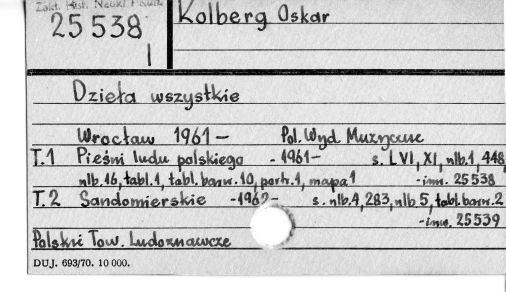 Zakł. Hist. Nauki i Techn.
25 538
I
Kolberg Oskar
Dzieła wszystkie
Wrocław 1961 – Pol. Wyd. Muzyczne
T.1 Pieśni ludu polskiego - 1961– s. LVI, XI, nlb.1, 448,
nlb.16, tabl.1, tabl.barw.10, portr.1, mapa 1 -inw. 25538
T.2 Sandomierskie -1962- s. nlb.4, 283, nlb 5, tabl.barw.2
-inw. 25539
Polskie Tow. Ludoznawcze
DUJ. 693/70. 10 000.